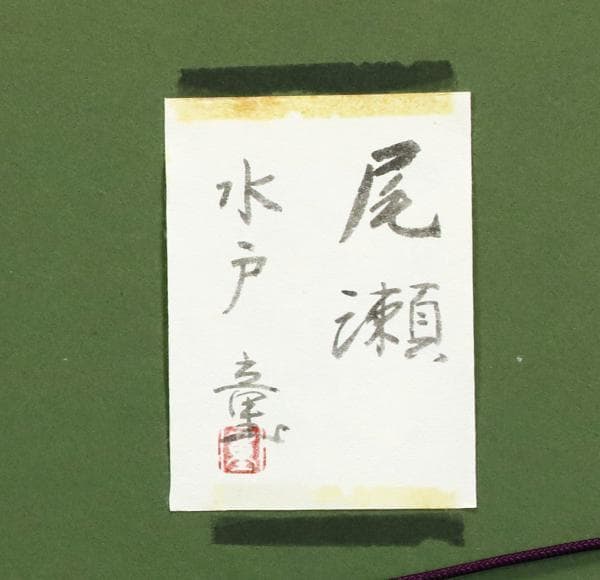 尾瀬
水戸童